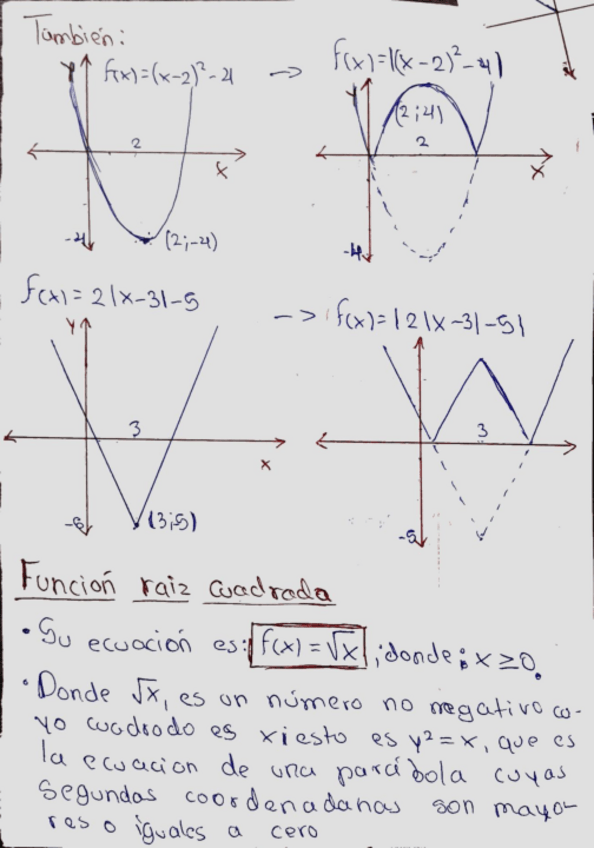 También:
f(x)=(x-2)²-4 -> f(x)=|(x-2)²-4|
y y
(2;4)
2 2
x x
-4 (2;-4) -4
f(x)= 2|x-3|-5 -> f(x)=|2|x-3|-5|
y
3 3
x
-5 (3;5) -5
Función raiz cuadrada
• Su ecuación es: f(x)=√x ; donde: x ≥0.
• Donde √x, es un número no negativo cu-
yo cuadrado es x; esto es y²=x, que es
la ecuacion de una parábola cuyas
segundas coordenadanas son mayo-
res o iguales a cero